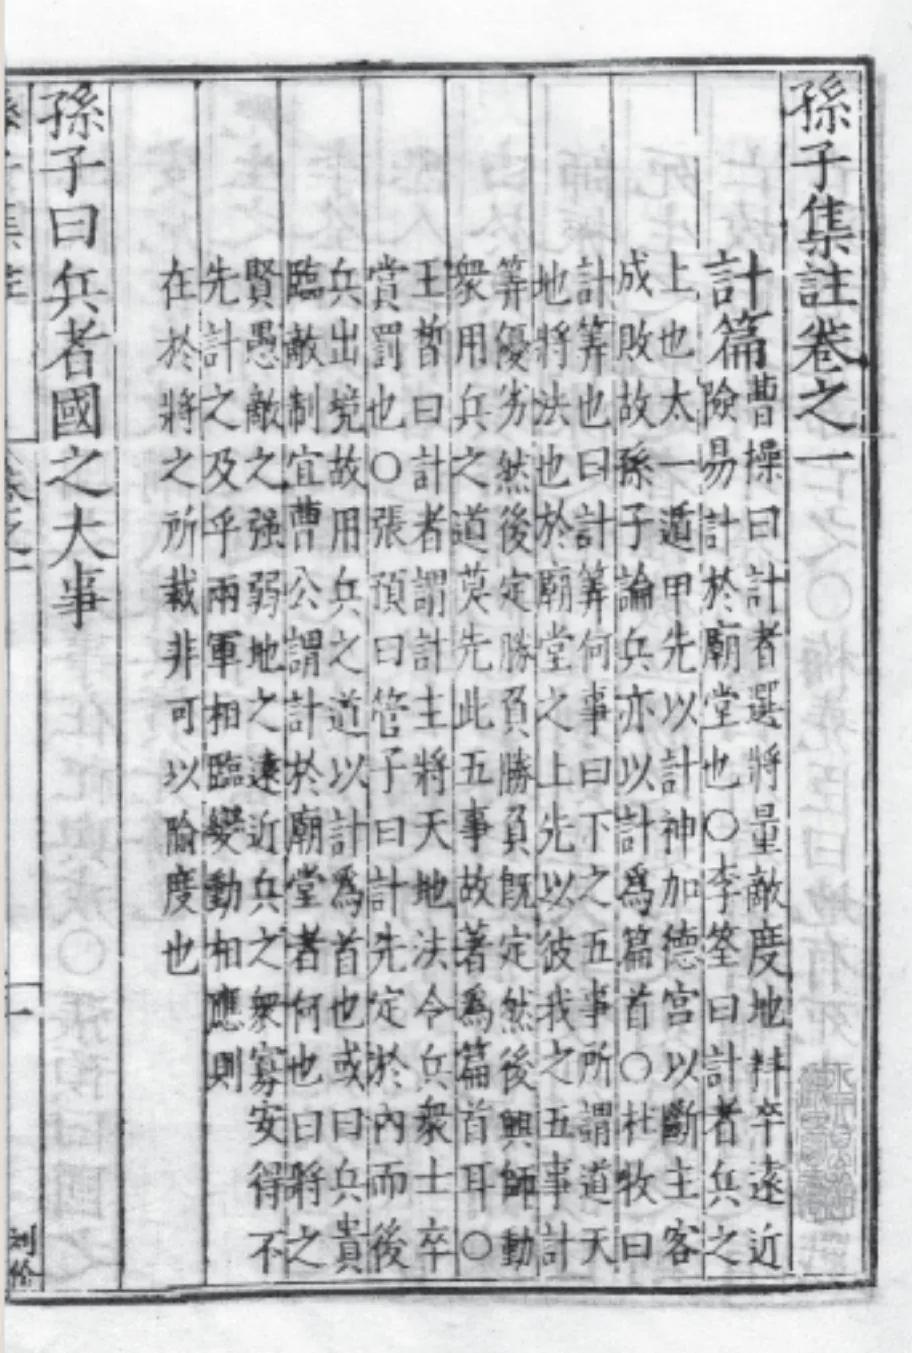 孫子集註卷之一
計篇
曹操曰計者選將量敵度地料卒遠近
險易計於廟堂也〇李筌曰計者兵之
上也太一遁甲先以計神加德宮以斷主客
成敗故孫子論兵亦以計爲篇首〇杜牧曰
計筭也曰計筭何事曰下之五事所謂道天
地將法也於廟堂之上先以彼我之五事計
筭優劣然後定勝負勝負既定然後興師動
衆用兵之道莫先此五事故著爲篇首耳〇
王晳曰計者謂計主將天地法令兵衆士卒
賞罰也〇張預曰管子曰計先定於內而後
兵出境故用兵之道以計爲首也或曰兵貴
臨敵制宜曹公謂計於廟堂者何也曰將之
賢愚敵之强弱地之遠近兵之衆寡安得不
先計之及乎兩軍相臨變動相應則
在於將之所裁非可以隃度也
孫子曰兵者國之大事